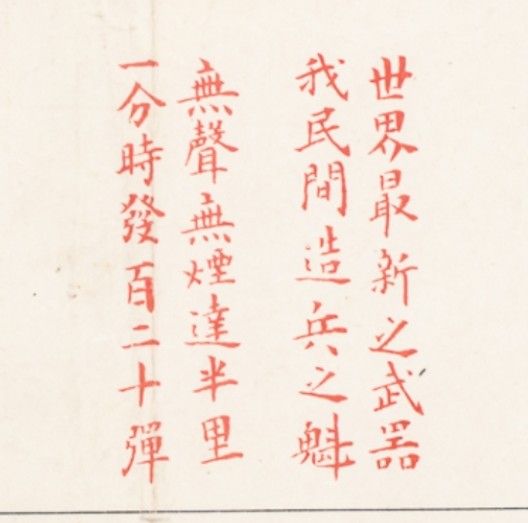 世界最新之武器
我民間造兵之魁
無聲無煙達半里
一分時發百二十彈